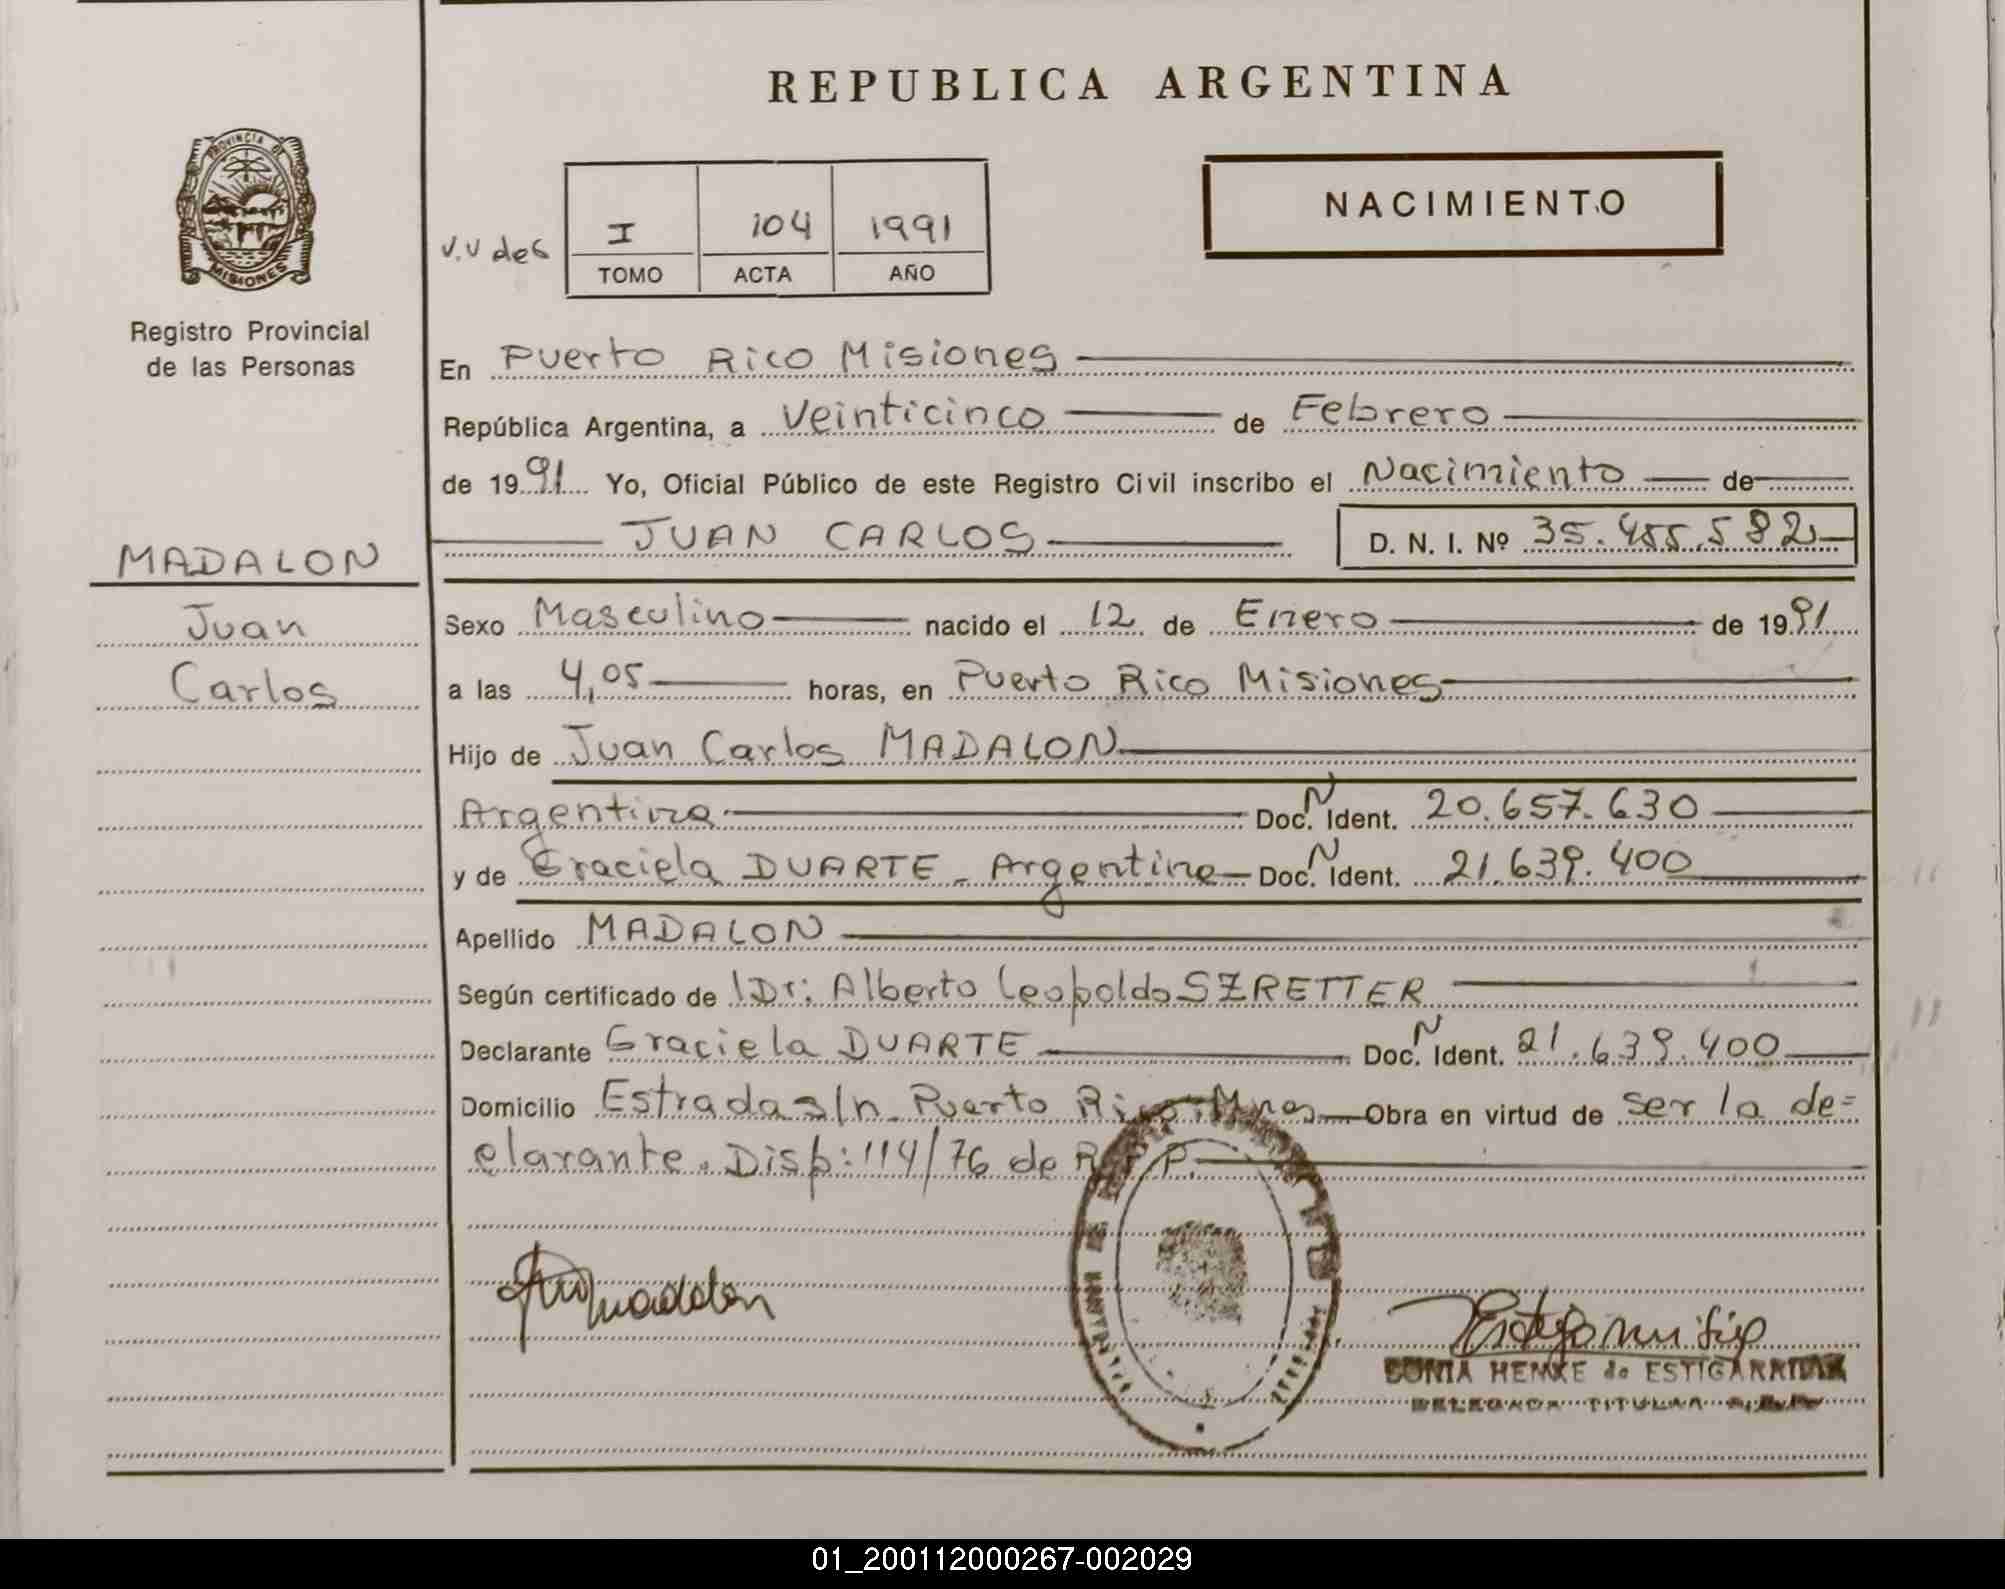 REPUBLICA ARGENTINA
PROVINCIA DE
MISIONES
Registro Provincial
de las Personas
NACIMIENTO
I 104 1991
TOMO ACTA AÑO
En Puerto Rico Misiones
República Argentina, a Veinticinco de Febrero
de 1991 Yo, Oficial Público de este Registro Civil inscribo el Nacimiento de
JUAN CARLOS D. N. I. Nº 35.455.582
MADALON
Juan
Carlos
Sexo Masculino nacido el 12 de Enero de 1991
a las 4,05 horas, en Puerto Rico Misiones
Hijo de Juan Carlos MADALON
Argentina Doc. N Ident. 20.657.630
y de Graciela DUARTE - Argentina Doc. N Ident. 21.639.400
Apellido MADALON
Según certificado de Dr: Alberto Leopoldo SZRETTER
Declarante Graciela DUARTE Doc. N Ident. 21.639.400
Domicilio Estrada s/n Puerto Rico Mnes Obra en virtud de ser la de=
clarante. Disp: 114/76 de R.P.P.
SONIA HENKE de ESTIGARRIBIA
DELEGADA TITULAR
01_200112000267-002029